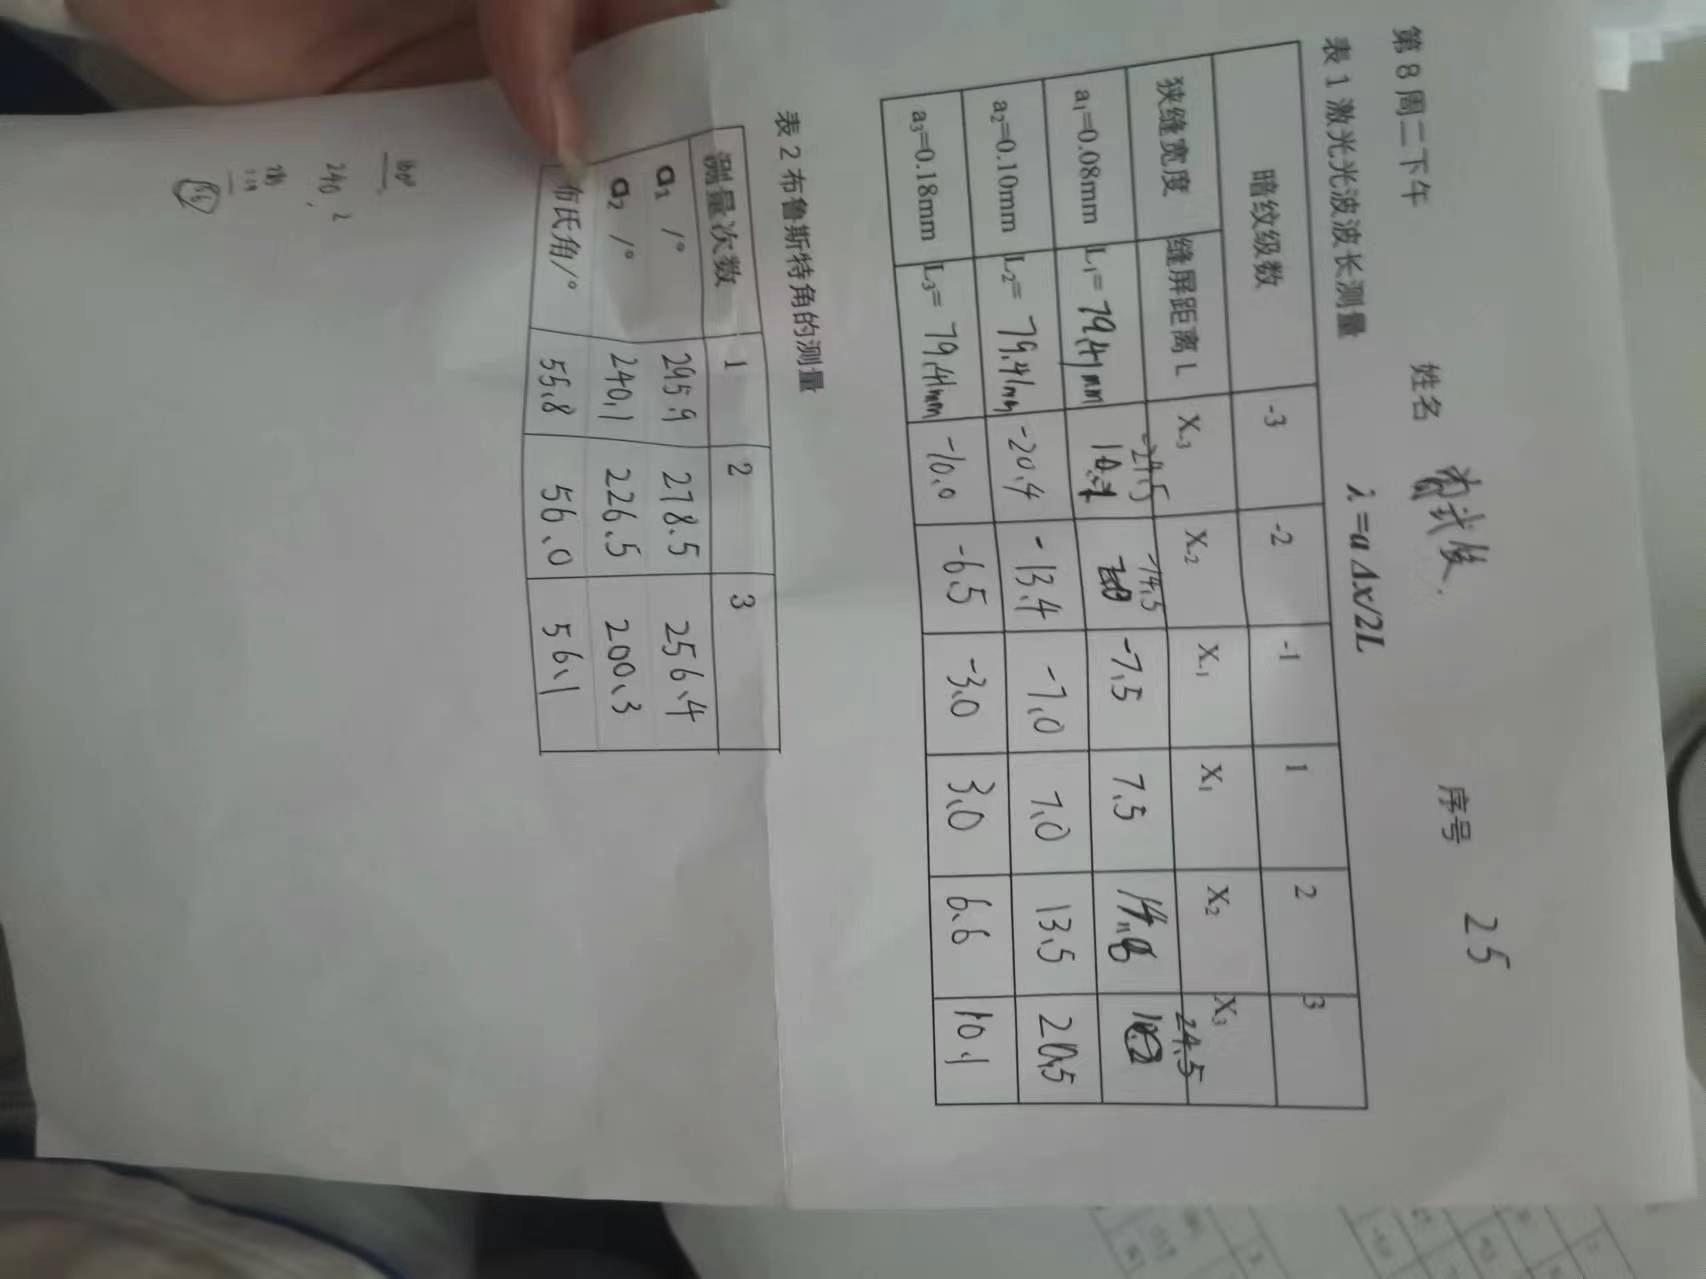 第 8 周二下午 姓名 序号 25
表 1 激光光波波长测量 λ=a Δx/2L
暗纹级数 -3 -2 -1 1 2 3
狭缝宽度 缝屏距离 L X-3 X-2 X-1 X1 X2 X3
-24.5 -14.5 24.5
a1=0.08mm L1= 79.41mm -7.5 7.5
a2=0.10mm L2= 79.41mm -20.4 -13.4 -7.0 7.0 13.5 20.5
a3=0.18mm L3= 79.41mm -10.0 -6.5 -3.0 3.0 6.6 10.1
表 2 布鲁斯特角的测量
测量次数 1 2 3
a1 /° 295.9 278.5 256.4
a2 /° 240.1 226.5 200.3
布氏角/° 55.8 56.0 56.1
240.2